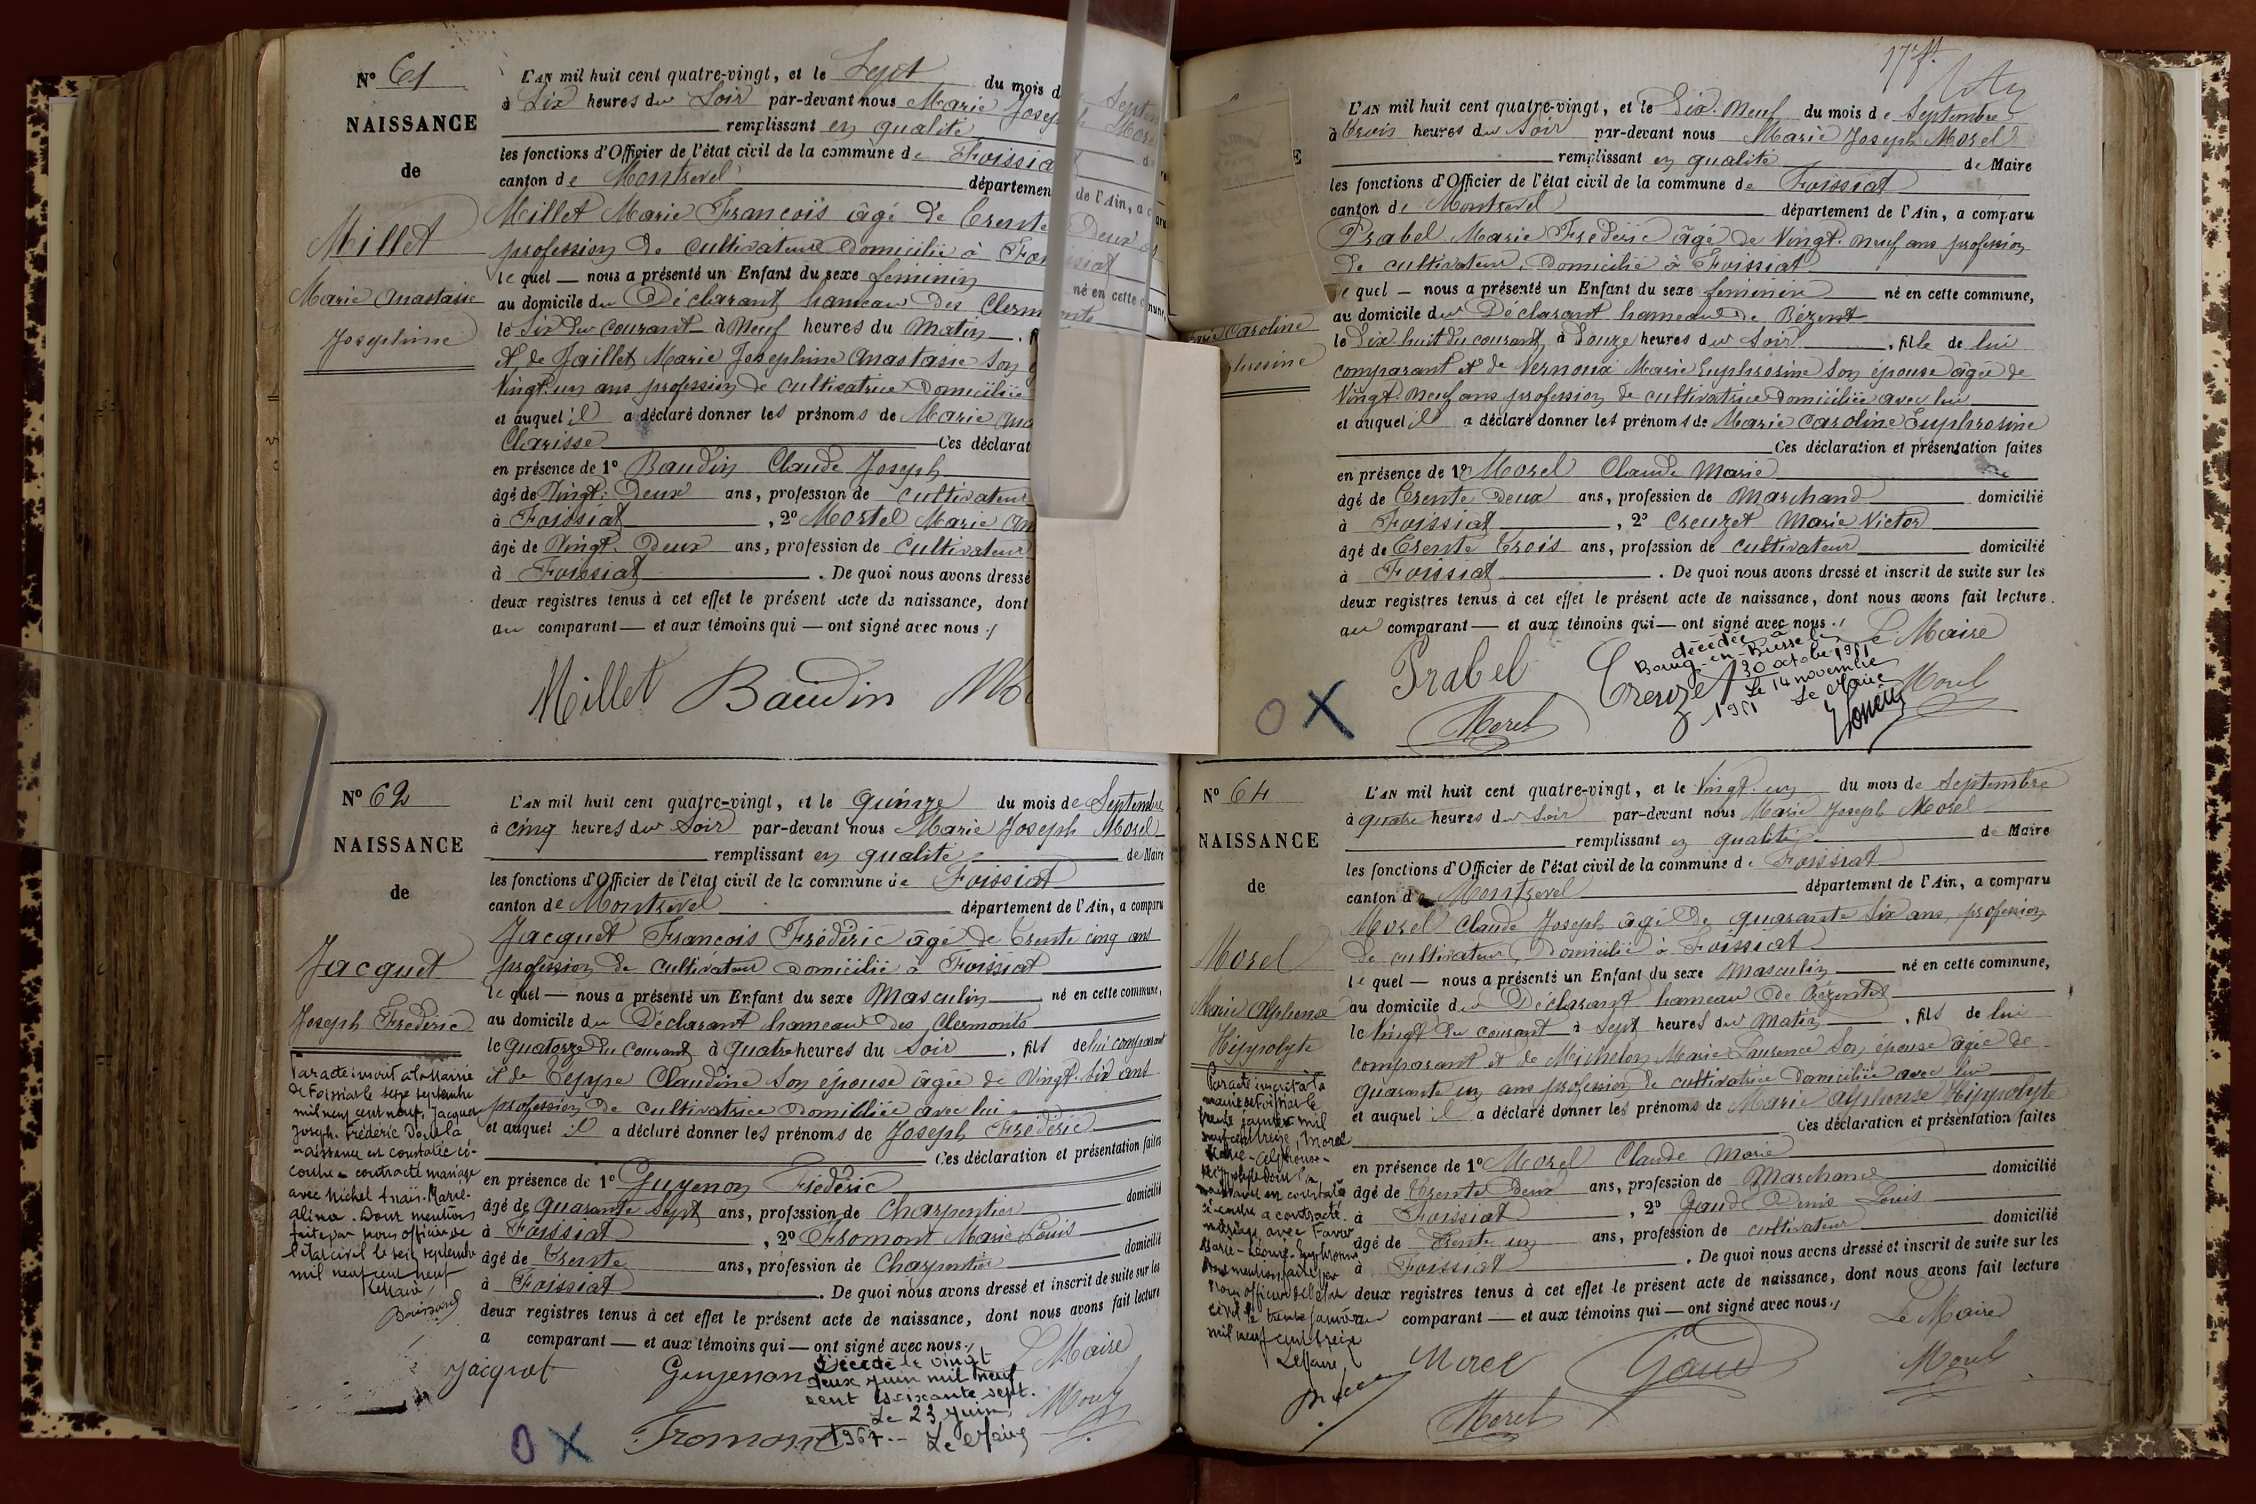 N° 61
NAISSANCE
de
Millet
Marie Anastasie
Josephine
L'AN mil huit cent quatre-vingt, et le Sept du mois de Septem
à Six heures du Soir par-devant nous Marie Joseph Morel
remplissant en qualité de
les fonctions d'Officier de l'état civil de la commune de Foissiat
canton de Montrevel département de l'Ain, a
Millet Marie François âgé de Trente Deux ans
profession de cultivateur domicilié à Foissiat
le quel — nous a présenté un Enfant du sexe féminin né en cette commune,
au domicile du Déclarant hameau des Clermonts
le Six du courant à Neuf heures du Matin
et de Jaillet Marie Josephine Anastasie Son
Vingt un ans profession de cultivatrice Domiciliée
et auquel il a déclaré donner les prénoms de Marie Ana
Clarisse Ces déclarat
en présence de 1° Baudin Claude Joseph
âgé de Vingt. Deux ans, profession de cultivateur
à Foissiat , 2° Mortel Marie An
âgé de Vingt. Deux ans, profession de cultivateur
à Foissiat . De quoi nous avons dressé
deux registres tenus à cet effet le présent acte de naissance, dont
au comparant — et aux témoins qui — ont signé avec nous ./
Millet Baudin Mo
N° 62
NAISSANCE
de
Jacquet
Joseph Frédéric
Par acte inscrit à la Mairie
de Foissiat le seize septembre
mil neuf cent neuf, Jacquet
Joseph-Frédéric dont la
naissance est constatée ci-
contre a contracté mariage
avec Michel Anaïs-Marie-
Alina. Dont mention
faite par nous officier de
l'état civil le seize septembre
mil neuf cent neuf
Le Maire
L'AN mil huit cent quatre-vingt, et le quinze du mois de Septembre
à cinq heures du Soir par-devant nous Marie Joseph Morel
remplissant en qualité de Maire
les fonctions d'Officier de l'état civil de la commune de Foissiat
canton de Montrevel département de l'Ain, a comparu
Jacquet François Frédéric âgé de Trente cinq ans
profession de cultivateur domicilié à Foissiat
le quel — nous a présenté un Enfant du sexe Masculin né en cette commune,
au domicile du Déclarant hameau des Clermonts
le quatorze du courant à quatre heures du Soir , fils de lui comparant
et de Teppe Claudine Son épouse âgée de Vingt. Six ans
profession de cultivatrice domiciliée avec lui
et auquel il a déclaré donner les prénoms de Joseph Frédéric
Ces déclaration et présentation faites
en présence de 1° Guyenon Frédéric
âgé de quarante Sept ans, profession de Charpentier domicilié
à Foissiat , 2° Fromont Marie Louis
âgé de Trente ans, profession de Charpentier domicilié
à Foissiat . De quoi nous avons dressé et inscrit de suite sur les
deux registres tenus à cet effet le présent acte de naissance, dont nous avons fait lecture
a comparant — et aux témoins qui — ont signé avec nous ./
Le Maire
Jacquet Guyenon Morel
Décédé le vingt
deux juin mil neuf
cent soixante sept.
Le 23 juin
1967.- Le Maire
Fromont
O X
17e ft
Marie Caroline
L'AN mil huit cent quatre-vingt, et le Dix. Neuf du mois de Septembre
à trois heures du Soir par-devant nous Marie Joseph Morel
remplissant en qualité de Maire
les fonctions d'Officier de l'état civil de la commune de Foissiat
canton de Montrevel département de l'Ain, a comparu
Prabel Marie Frédéric âgé de Vingt. neuf ans profession
de cultivateur, domicilié à Foissiat
le quel — nous a présenté un Enfant du sexe féminin né en cette commune,
au domicile du Déclarant hameau de Bézent
le Dix huit du courant à Douze heures du Soir , fille de lui
comparant et de Vernoux Marie Euphrosine Son épouse âgée de
Vingt. Neuf ans profession de cultivatrice domiciliée avec lui
et auquel il a déclaré donner les prénoms de Marie Caroline Euphrosine
Ces déclaration et présentation faites
en présence de 1° Morel Claude Marie
âgé de Trente Deux ans, profession de Marchand domicilié
à Foissiat , 2° Creuzet Marie Victor
âgé de Trente Trois ans, profession de cultivateur domicilié
à Foissiat . De quoi nous avons dressé et inscrit de suite sur les
deux registres tenus à cet effet le présent acte de naissance, dont nous avons fait lecture.
au comparant — et aux témoins qui — ont signé avec nous ./
Le Maire
Prabel Creuzet Morel
Morel
décédée à
Bourg-en-Bresse le
30 octobre 1951
Le 14 novembre
1951 Le Maire
O X
N° 64
NAISSANCE
de
Morel
Marie Alphonse
Hippolyte
Par acte inscrit à la
mairie de Foissiat le
trente janvier mil
neuf cent treize, Morel
Marie-Alphonse-
Hippolyte dont la
naissance est constatée
ci-contre a contracté
mariage avec Favier
Marie-Léonie-Euphrosine
Dont mention faite par
Nous officier de l'état
civil le trente janvier
mil neuf cent treize
Le Maire
L'AN mil huit cent quatre-vingt, et le Vingt. un du mois de Septembre
à quatre heures du Soir par-devant nous Marie Joseph Morel
remplissant en qualité de Maire
les fonctions d'Officier de l'état civil de la commune de Foissiat
canton de Montrevel département de l'Ain, a comparu
Morel Claude Joseph âgé de quarante Six ans, profession
de cultivateur, Domicilié à Foissiat
le quel — nous a présenté un Enfant du sexe Masculin né en cette commune,
au domicile du Déclarant hameau de Bézentet
le Vingt du courant à Sept heures du Matin , fils de lui
comparant et de Michelon Marie Laurence Son épouse âgée de
quarante un ans profession de cultivatrice domiciliée avec lui
et auquel il a déclaré donner les prénoms de Marie Alphonse Hippolyte
Ces déclaration et présentation faites
en présence de 1° Morel Claude Marie
âgé de Trente Deux ans, profession de Marchand domicilié
à Foissiat , 2° Gaud Denis Louis
âgé de Trente un ans, profession de cultivateur domicilié
à Foissiat . De quoi nous avons dressé et inscrit de suite sur les
deux registres tenus à cet effet le présent acte de naissance, dont nous avons fait lecture
comparant — et aux témoins qui — ont signé avec nous ./
Le Maire
Morel Gaud Morel
Morel